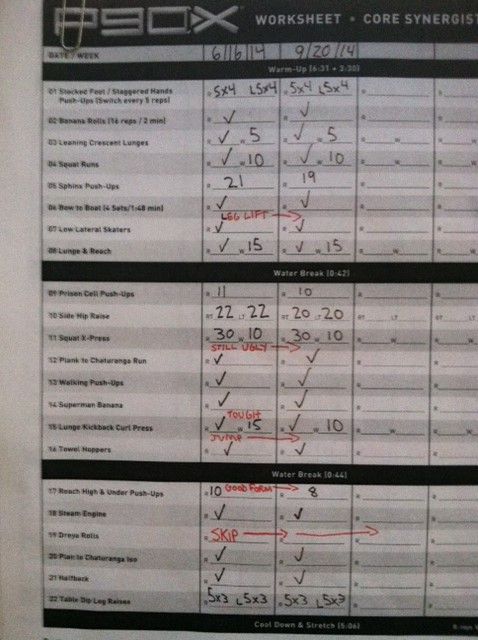 P90X WORKSHEET • CORE SYNERGIST
DATE / WEEK 6/16/14 9/20/14
Warm-Up (6:31 + 3:30)
01 Stacked Foot / Staggered Hands R 5x4 L 5x4 R 5x4 L 5x4
Push-Ups (Switch every 5 reps)
02 Banana Rolls (16 reps / 2 min) R ✓ R ✓ R R
03 Leaning Crescent Lunges R ✓ W 5 R ✓ W 5 R W R
04 Squat Runs R ✓ W 10 R ✓ W 10 R W R
05 Sphinx Push-Ups R 21 R 19 R R
06 Bow to Boat (4 Sets/1:48 min) R ✓ R ✓ R R
LEG LIFT →
07 Low Lateral Skaters R ✓ R ✓ R R
08 Lunge & Reach R ✓ W 15 R ✓ W 15 R W R
Water Break (0:42)
09 Prison Cell Push-Ups R 11 R 10 R R
10 Side Hip Raise RT 22 LT 22 RT 20 LT 20 RT LT RT
11 Squat X-Press R 30 W 10 R 30 W 10 R W R
STILL UGLY →
12 Plank to Chaturanga Run R ✓ R ✓ R R
13 Walking Push-Ups R ✓ R ✓ R R
14 Superman Banana R ✓ R ✓ R R
TOUGH
15 Lunge-Kickback Curl Press R ✓ W 15 R ✓ W 10 R W R
JUMP →
16 Towel Hoppers R ✓ R ✓ R R
Water Break (0:44)
17 Reach High & Under Push-Ups R 10 GOOD FORM → R 8 R R
18 Steam Engine R ✓ R ✓ R R
19 Dreya Rolls R SKIP → → R
20 Plank to Chaturanga Iso R ✓ R ✓ R R
21 Halfback R ✓ R ✓ R R
22 Table Dip Leg Raises R 5x3 L 5x3 R 5x3 L 5x3 R R
Cool Down & Stretch (5:06)